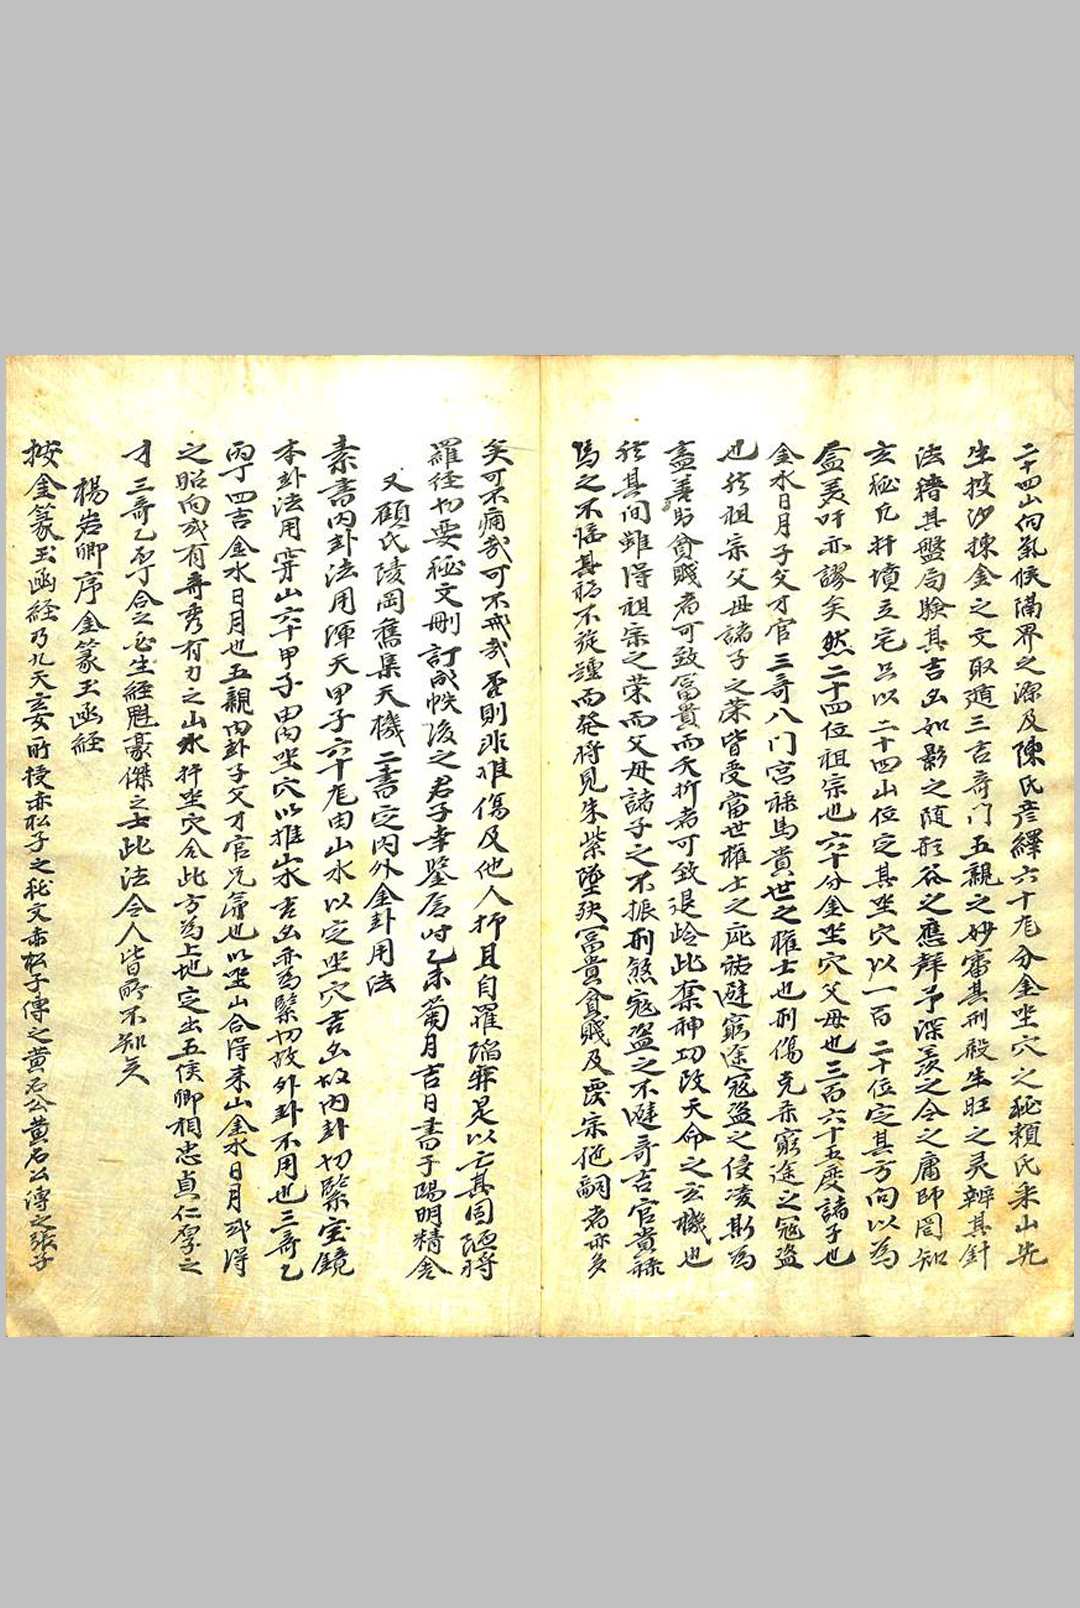 二十四山向氣候隔界之源及陳氏彦繹六十龙分金坐穴之秘賴氏來山先
生披沙揀金之文取遁三吉竒门五親之妙審其刑殺生旺之灵辨其針
法稽其盤局驗其吉凶如影之随形谷之應聲予深羡之今之庸師罔知
玄秘凡扦墳立宅只以二十四山位定其坐穴以一百二十位定其方向以為
盡美吁亦謬矣然二十四位祖宗也六十分金坐穴父母也三百六十五度諸子也
金水日月子父才官三竒八门宫禄馬貴世之權士也刑傷克杀窮途之寇盗
也於祖宗父母諸子之荣皆受當世權士之庇祐避窮途寇盗之侵凌斯為
盡善貧賤者可致富貴而夭折者可致退岭此奪神功改天命之玄機也
於其间雖得祖宗之荣而父母諸子之不振刑煞寇盗之不避竒吉官貴禄
馬之不臨其禍不旋踵而発将見朱紫墜玦富貴貧賤及覆宗绝嗣者亦多
矣可不痛哉可不戒哉否則非惟傷及他人抑且自罹陥穽是以亡其固陋将
羅经切要秘文删訂成帙後之君子幸鑒焉时乙未菊月吉日書于陽明精舍
又顧氏陵岡舊集天機二書定内外金卦用法
素書内卦法用渾天甲子六十龙由山水以定坐穴吉凶故内卦切緊宝鏡
本卦法用穿山六十甲子由内坐穴以推山水吉凶亦為緊切故外卦不用也三竒乙
丙丁四吉金水日月也五親内卦子父才官兄弟也以坐山合得来山金水日月或得
之照向或有竒秀有力之山水扦坐穴合此方為上地定出五侯卿相忠貞仁厚之
才三竒乙丙丁合之必生経魁豪傑之士此法今人皆略不知矣
楊岩卿序金篆玉函経
按金篆玉函経乃九天玄女所授赤松子之秘文赤松子傳之黄石公黄石公傳之張子